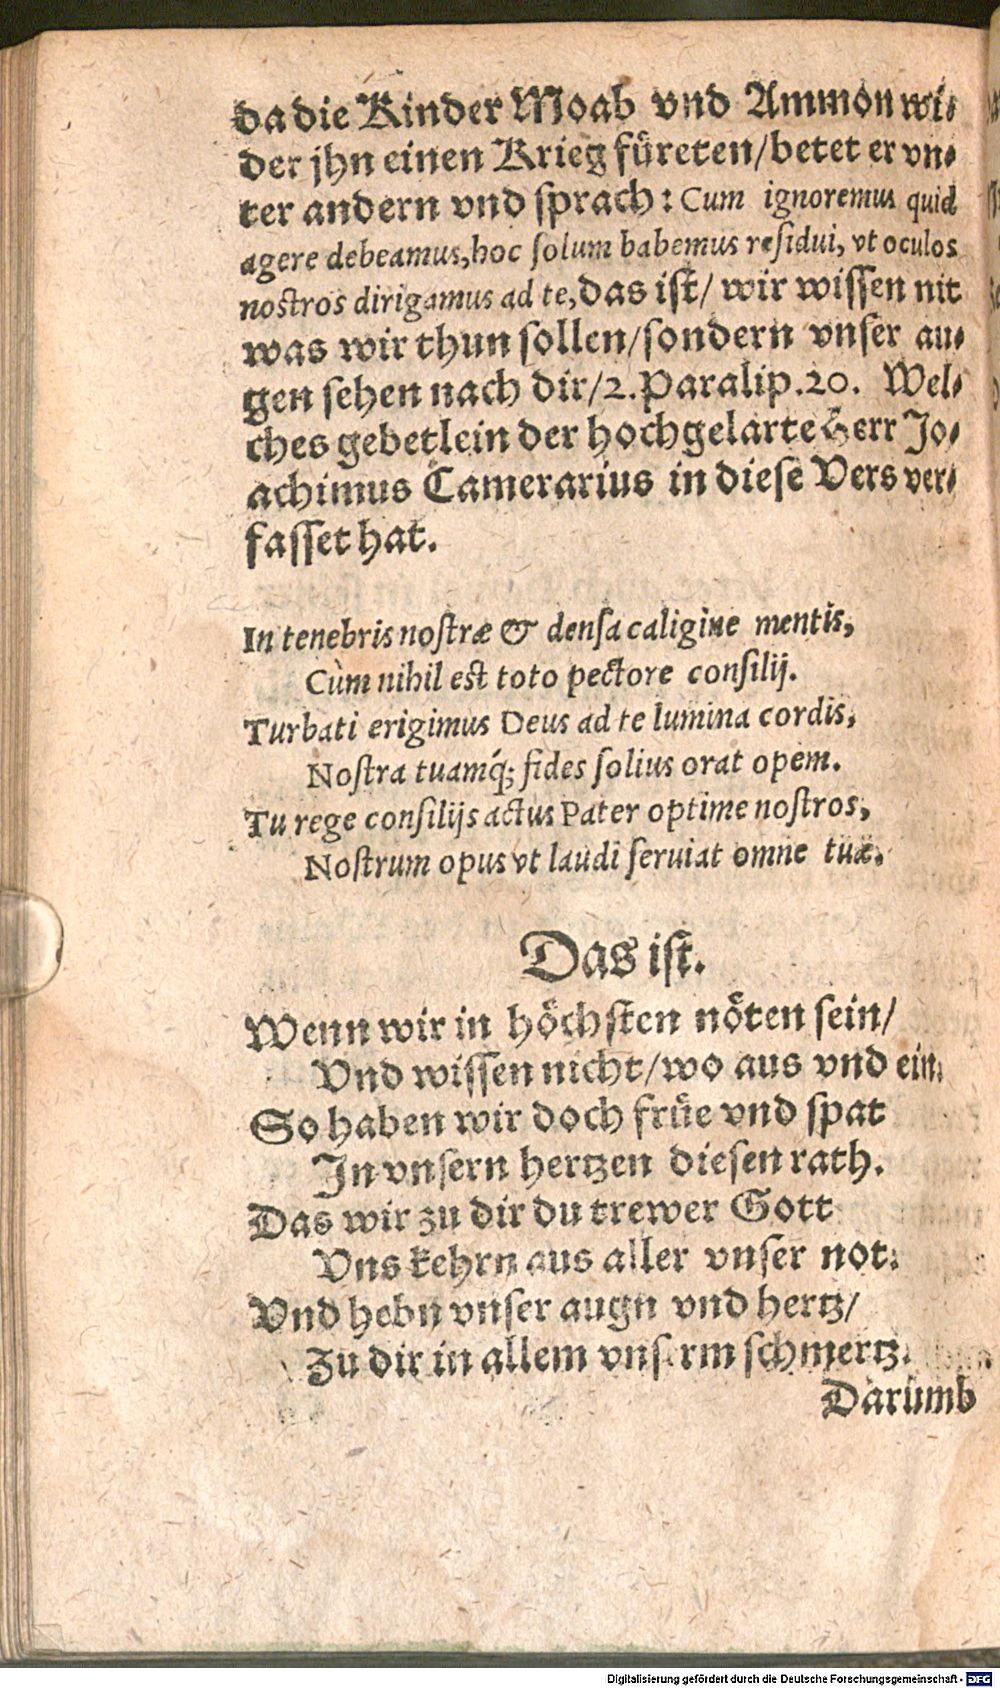 da die Kinder Moab vnd Ammon wi⸗
der jhn einen Krieg füreten/betet er vn⸗
ter andern vnd sprach: Cum ignoremus quid
agere debeamus, hoc solum habemus residui, vt oculos
nostros dirigamus ad te, das ist/ wir wissen nit
was wir thun sollen/sondern vnser au⸗
gen sehen nach dir/2. Paralip. 20. Wel⸗
ches gebetlein der hochgelarte Herr Jo⸗
achimus Camerarius in diese Vers ver⸗
fasset hat.
In tenebris nostræ & densa caligine mentis,
Cùm nihil est toto pectore consilij.
Turbati erigimus Deus ad te lumina cordis,
Nostra tuamq́; fides solius orat opem.
Tu rege consilijs actus Pater optime nostros,
Nostrum opus vt laudi seruiat omne tuæ.
Das ist.
Wenn wir in höchsten nöten sein/
Vnd wissen nicht/wo aus vnd ein.
So haben wir doch früe vnd spat
In vnsern hertzen diesen rath.
Das wir zu dir du trewer Gott
Vns kehrn aus aller vnser not.
Vnd hebn vnser augn vnd hertz/
Zu dir in allem vnserm schmertz.
Darumb
Digitalisierung gefördert durch die Deutsche Forschungsgemeinschaft - DFG